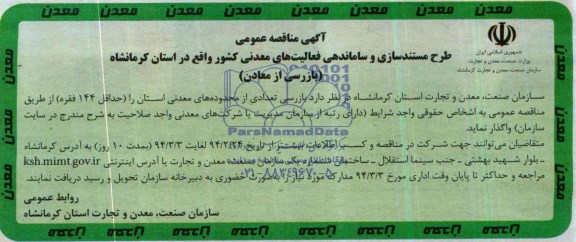 آگهی مناقصه عمومی
طرح مستندسازی و ساماندهی فعالیت‌های معدنی کشور واقع در استان کرمانشاه
(بازرسی از معادن)
جمهوری اسلامی ایران
وزارت صنعت، معدن و تجارت
سازمان صنعت، معدن و تجارت کرمانشاه
سـازمان صنعت، معدن و تجارت استان کرمانشـاه در نظر دارد بازرسی تعدادی از محدوده‌های معدنی استان را (حداقل ۱۴۴ فقره) از طریق
مناقصه عمومی به اشخاص حقوقی واجد شرایط (دارای رتبه از سازمان مدیریت یا شرکت‌های معدنی واجد صلاحیت به شرح مندرج در سایت
سازمان) واگذار نماید.
متقاضیان می‌توانند جهت شـرکت در مناقصه و کسب اطلاعات بیشتر از تاریخ ۹۴/۲/۲۴ لغایت ۹۴/۳/۳ (بمدت ۱۰ روز) به آدرس کرمانشاه
ـ بلوار شـهید بهشتی ـ جنب سینما استقلال ـ ساختمان شماره یک سازمان صنعت، معدن و تجارت با آدرس اینترنتی ksh.mimt.gov.ir
مراجعه و حداکثر تا پایان وقت اداری مورخ ۹۴/۳/۳ مدارک مورد نیاز را به‌صورت حضوری به دبیرخانه سازمان تحویل و رسید دریافت نمایند.
روابط عمومی
سازمان صنعت، معدن و تجارت استان کرمانشاه
ParaNamadData
۰۲۱-۸۸۳۴۹۶۷۰-۵
معدن